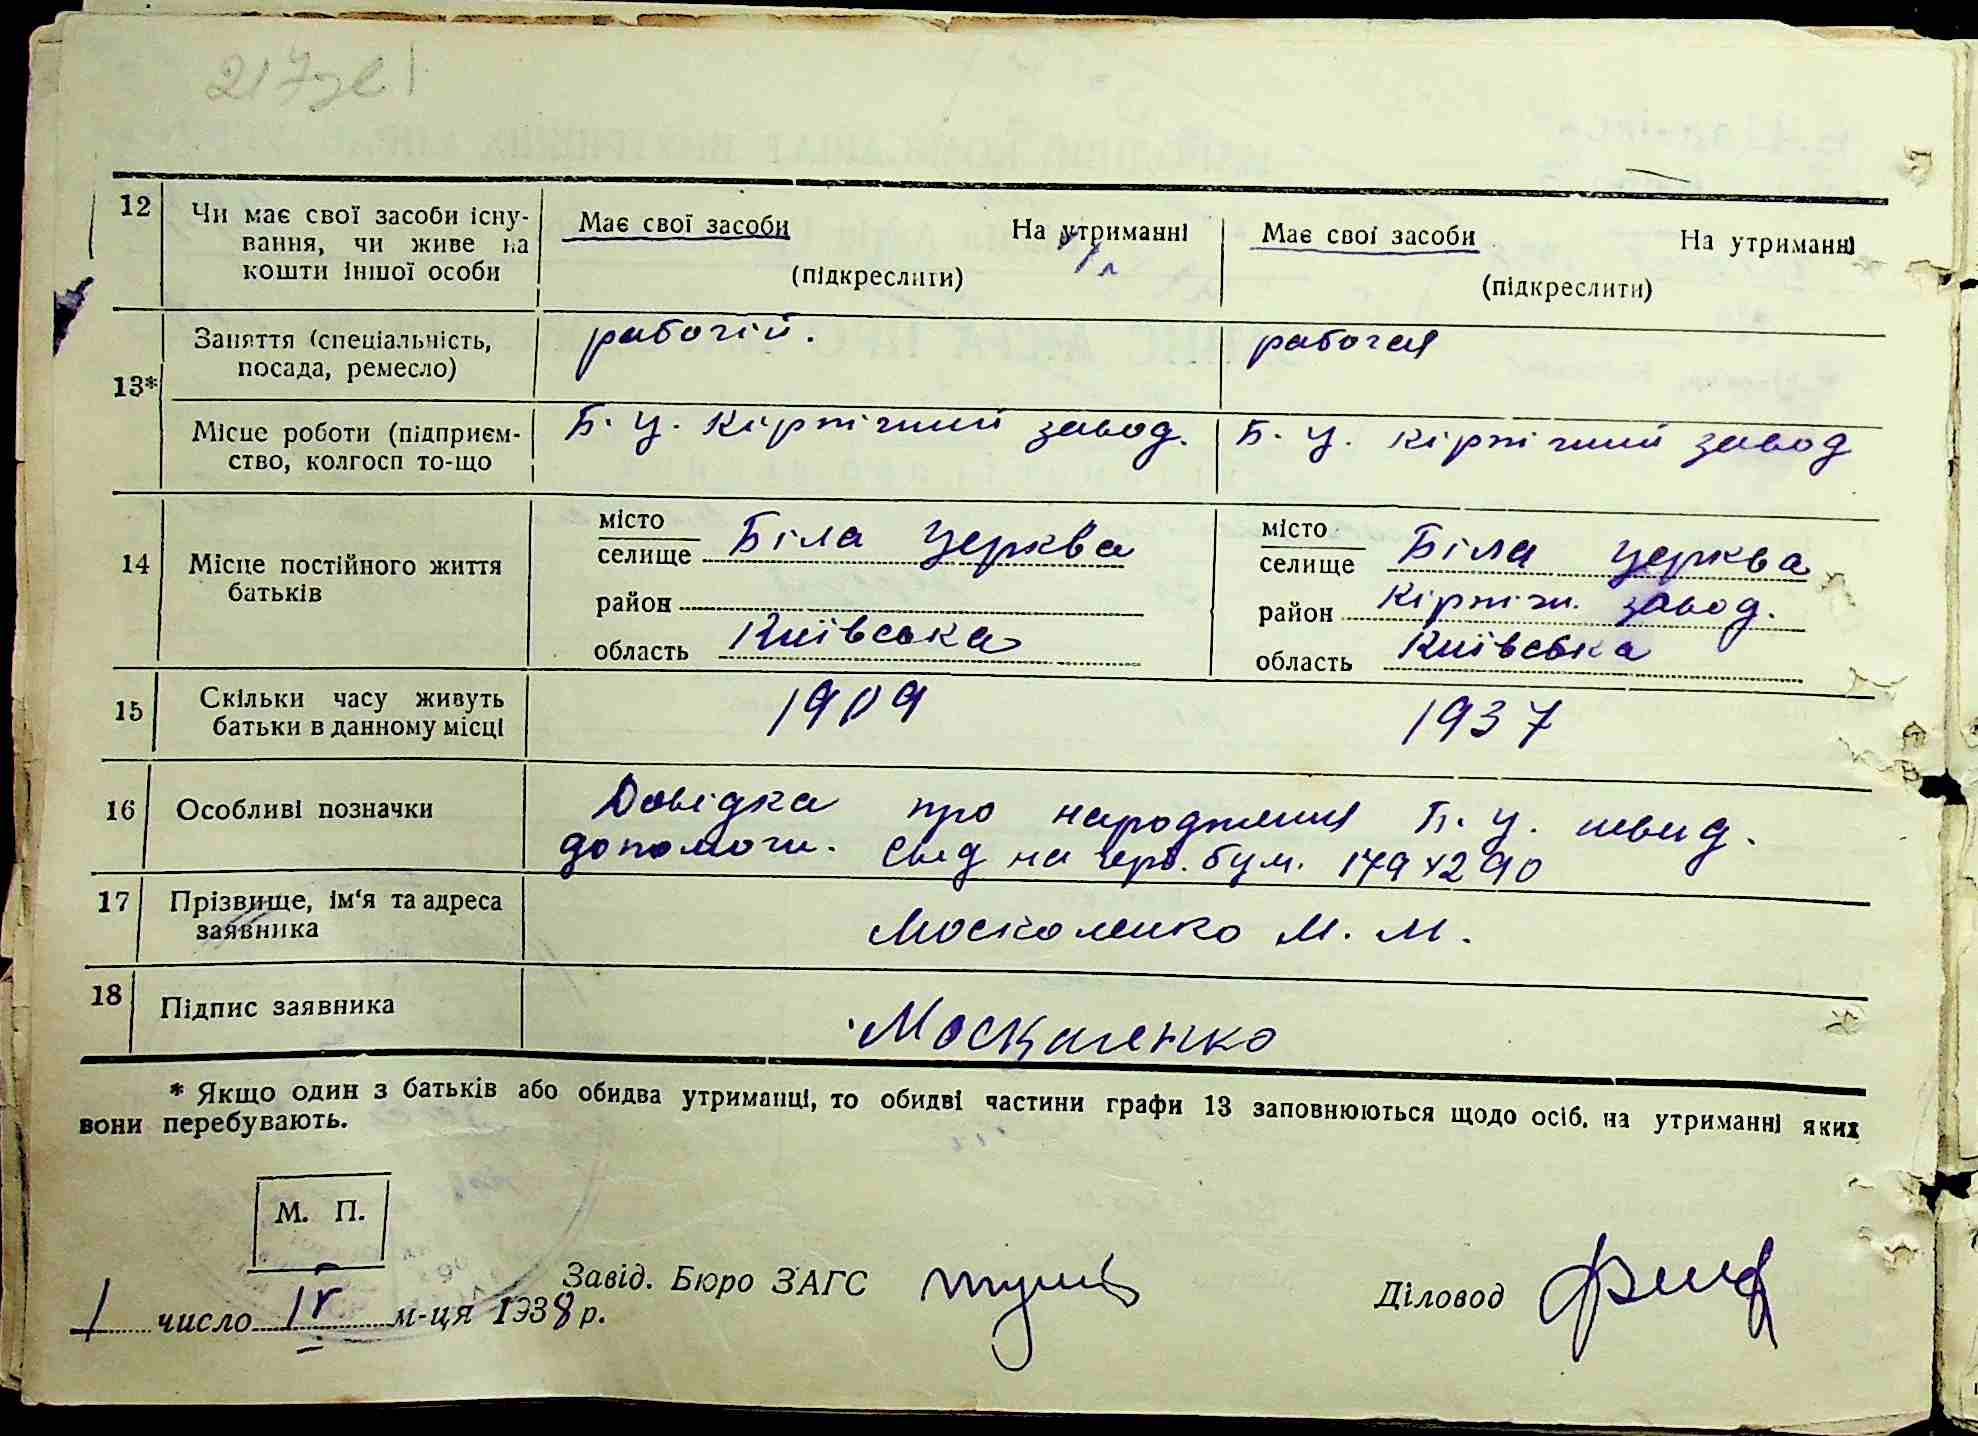 217
12 Чи має свої засоби існу-
вання, чи живе на
кошти іншої особи
Має свої засоби На утриманні
(підкреслити)
Має свої засоби На утриманні
(підкреслити)
13*
Заняття (спеціальність,
посада, ремесло)
рабочій.
рабочая
Місце роботи (підприєм-
ство, колгосп то-що
Б. Ц. Кірпічний завод.
Б. Ц. кірпічний завод
14 Місце постійного життя
батьків
місто
селище Біла Церква
район
область Київська
місто
селище Біла Церква
район Кірпічн. завод.
область Київська
15 Скільки часу живуть
батьки в данному місці
1909
1937
16 Особливі позначки
Довідка про народження Б. Ц. швид.
допомоги. на бум.
17 Прізвище, ім'я та адреса
заявника
Москаленко М. М.
18 Підпис заявника
Москаленко
* Якщо один з батьків або обидва утриманці, то обидві частини графи 13 заповнюються щодо осіб, на утриманні яких
вони перебувають.
М. П.
Завід. Бюро ЗАГС
Діловод
1 число IV м-ця 1938 р.